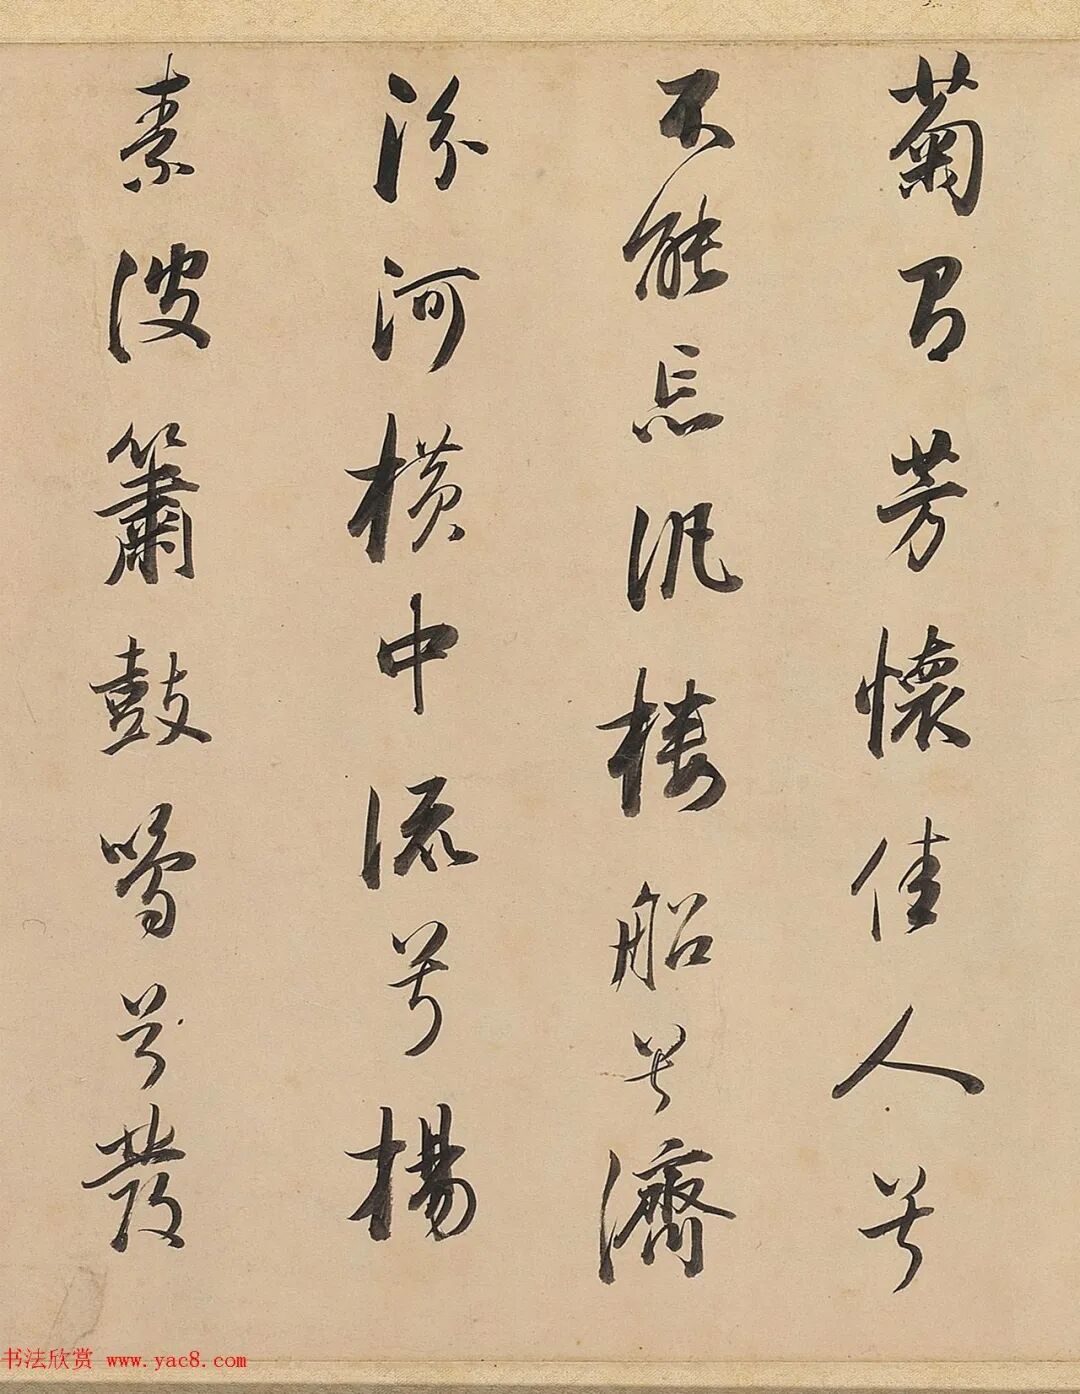 菊有芳懷佳人兮
不能忘汎樓船兮濟
汾河橫中流兮揚
素波簫鼓鳴兮發
书法欣赏 www.yac8.com